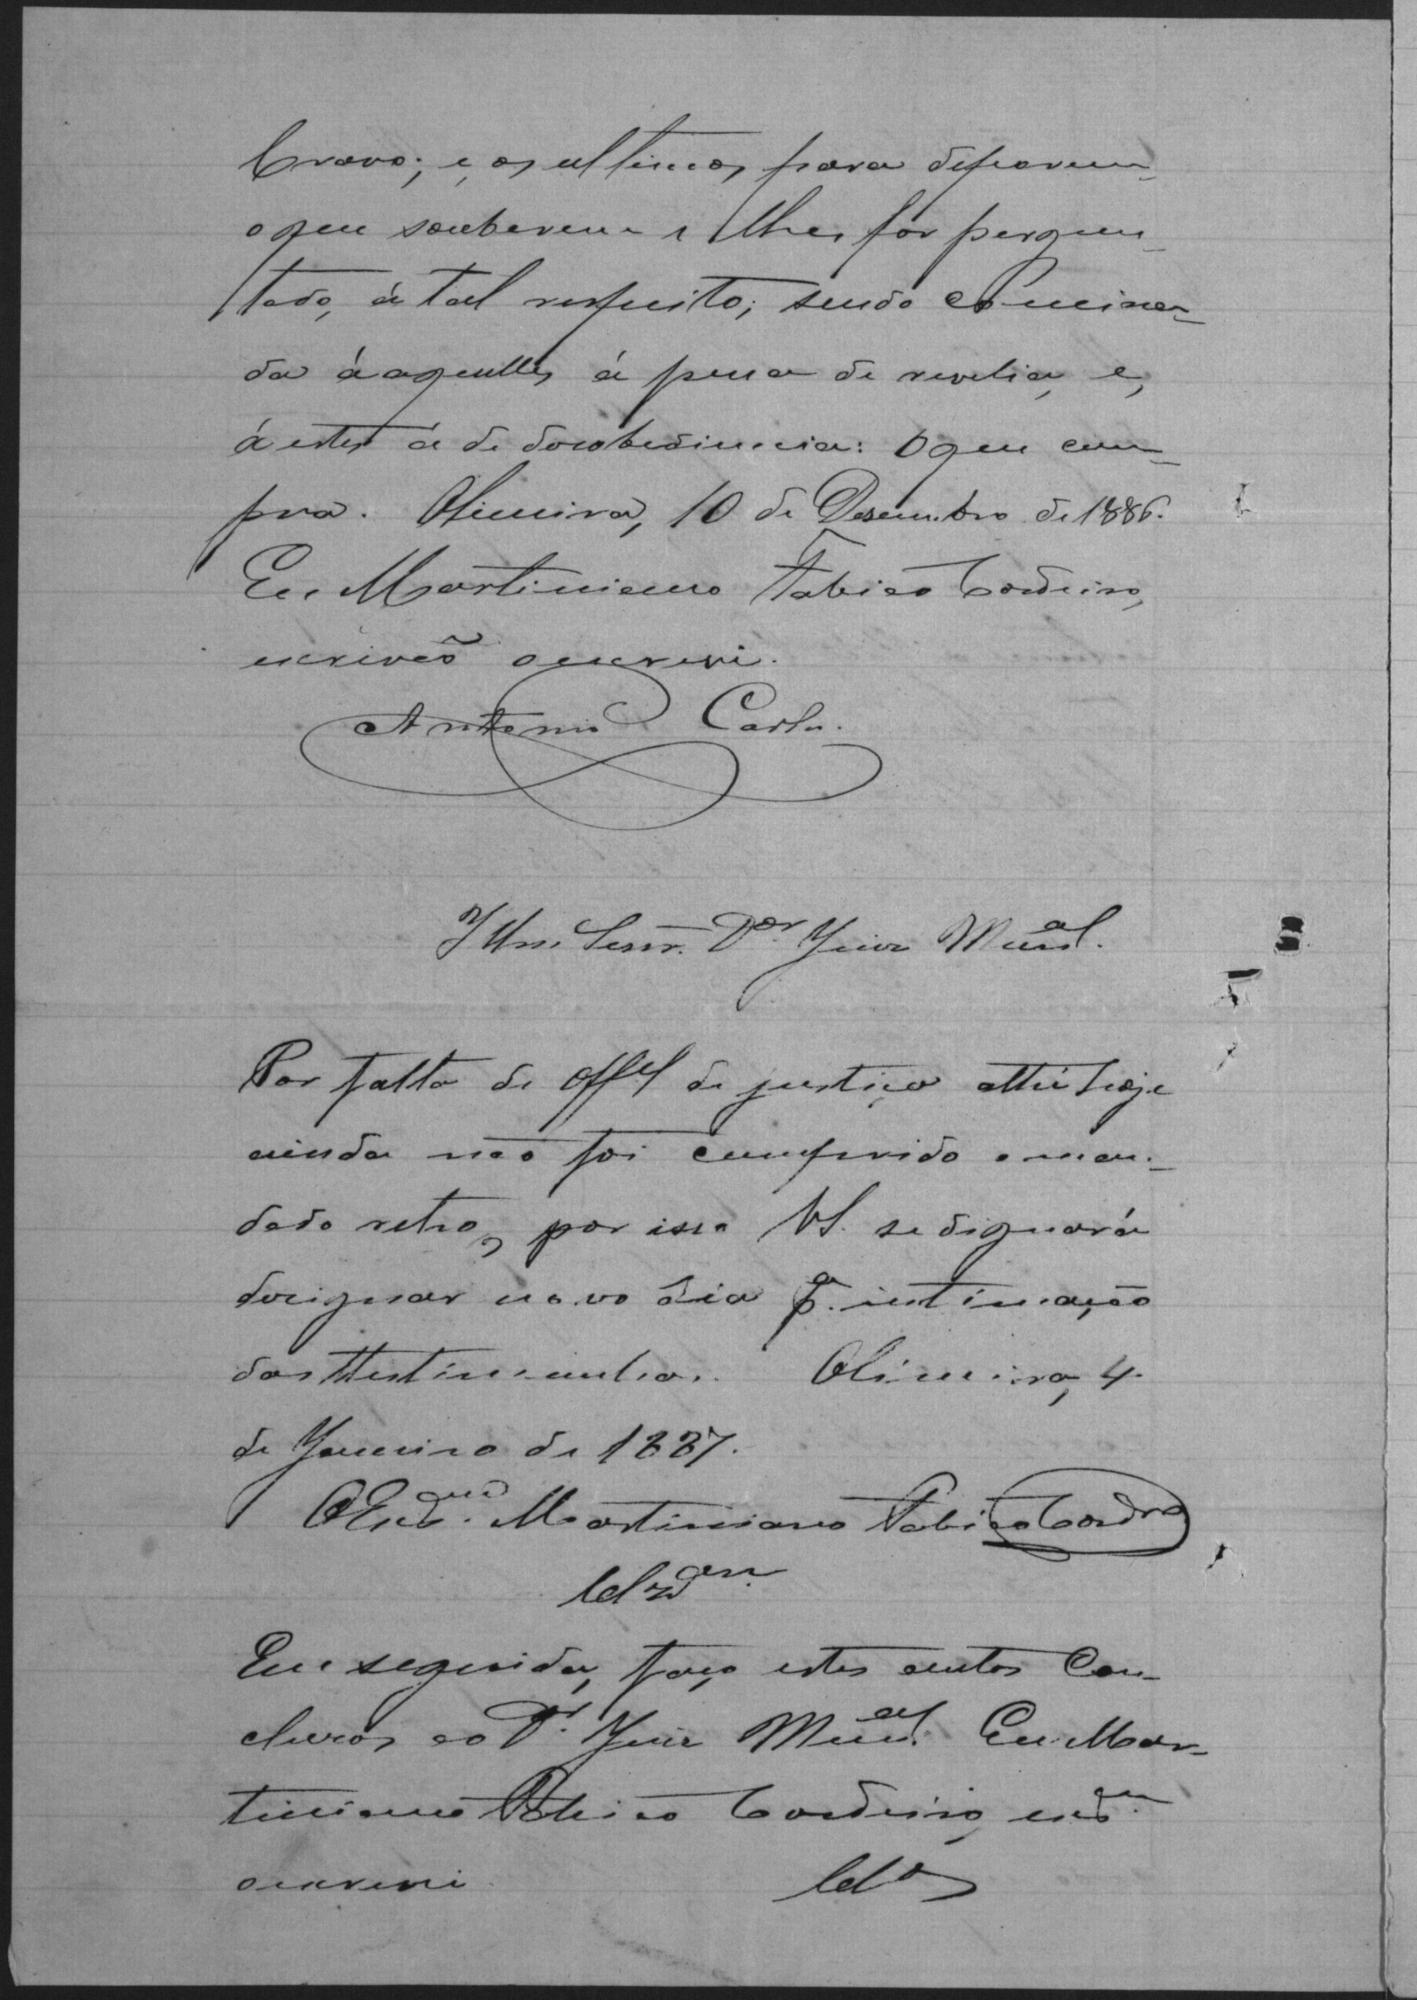 Cravo; e, os ultimos, para deporem
o que souberem e lhes fôr pergun-
tado, á tal respeito; sendo comina-
da áaquelles á pena de revelia, e,
á estes á de desobediencia: O que cum-
pra. Oliveira, 10 de Desembro de 1886.
Eu Martiniano Fabião Cordeiro,
escrivão o escrevi.
Antonio Carlos.
Illm Senr. Dor. Juiz Munal.
Por falta de Offel de justiça atthé hoje
ainda não foi cumprido o man-
dado retro, por isso VS. se dignará
designar novo dia pa. intimação
das ttestimunhas. Oliveira, 4
de Janeiro de 1887.
O Martiniano Fabião Cordro
Em seguida, faço estes autos Con-
clusos ao Dr. Juiz Munal. Eu Mar-
tiniano Fabião Cordeiro,
o escrevi Clos